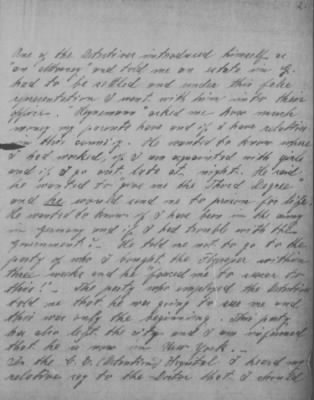 2.
One of the Detectives introduced himself as
"an attorney" and told me an estate in G.
had to be settled and under this false
representation I went with him into their
office. "Heynemann" asked me how much
money my parents have and if I have relatives
in this country. He wanted to know where
I had worked, if I am acquainted with girls
and if I go out late at night. He said
he wanted to give me the "Third Degree"
and he would send me to prison for life.
He wanted to know if I have been in the army
in Germany and if I had trouble with the
Government". He told me not to go to the
party of who I bought the within
three weeks and he "forced me to swear to
this". The party who employed the Detectives
told me that he was going to me and
this was only the beginning. This party
has also left the city and I am informed
that he is now in New York.
In the (Detention) Hospital I heard my
relative say to the Doctor that I should